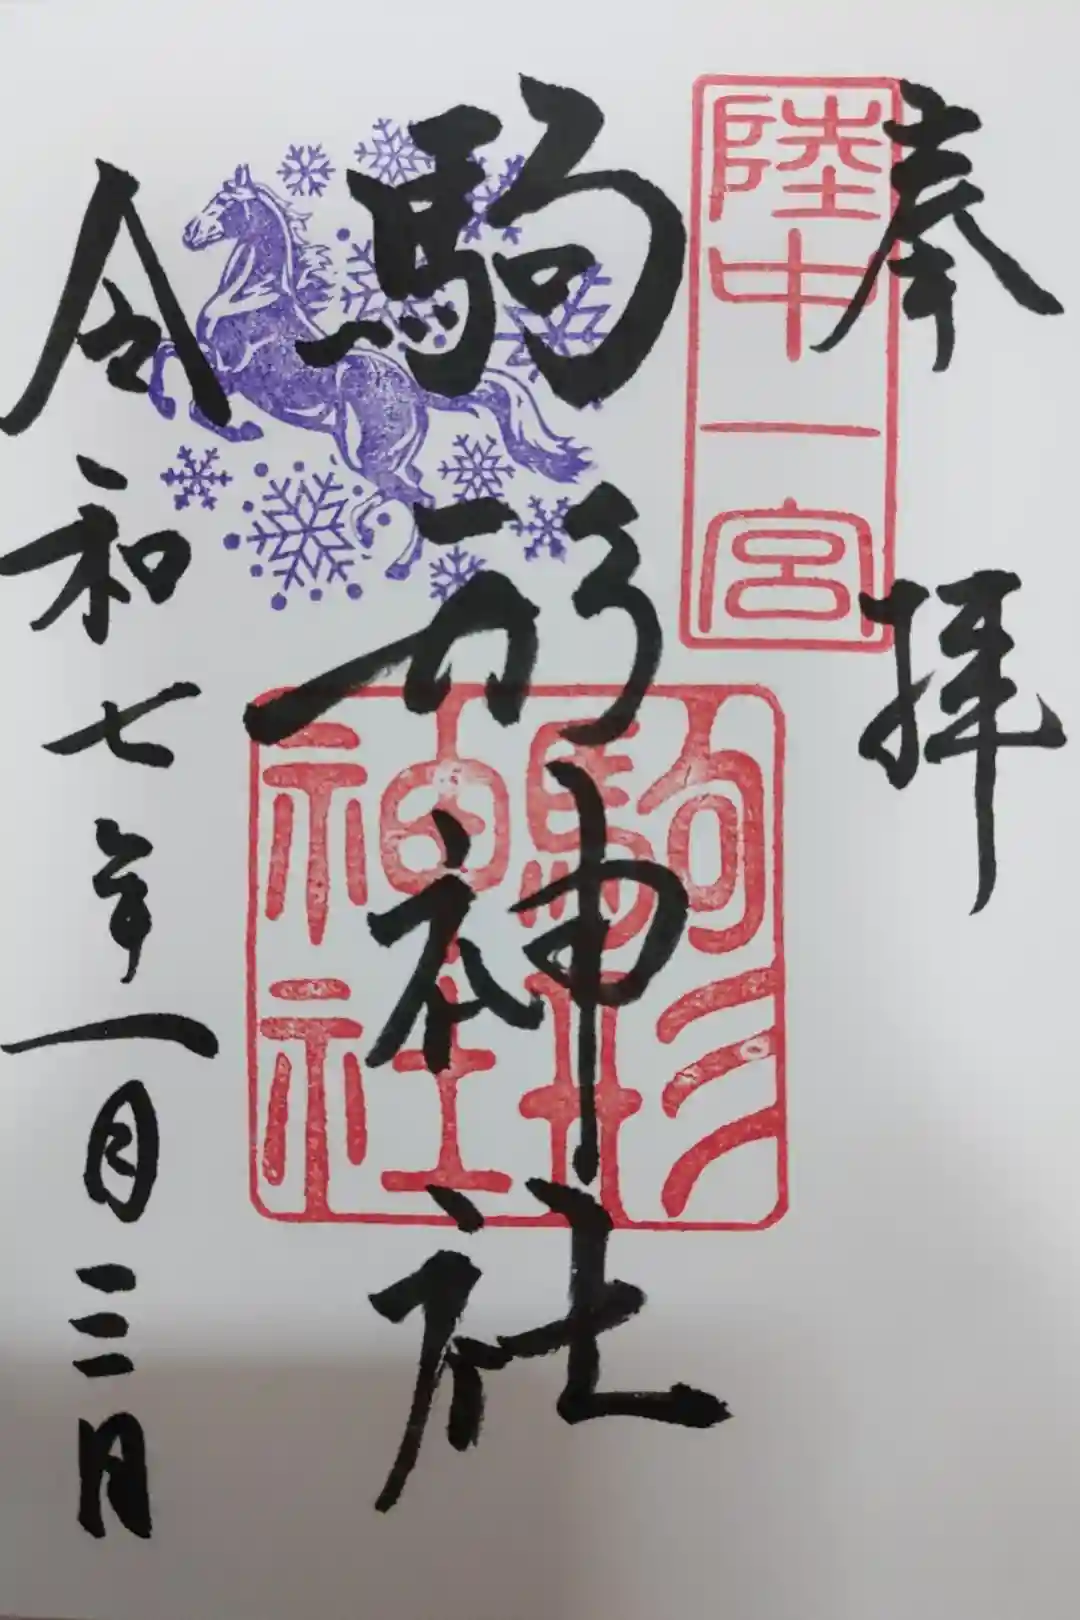 奉拝
陸中一宮
駒形神社
駒形神社
令和七年一月三日